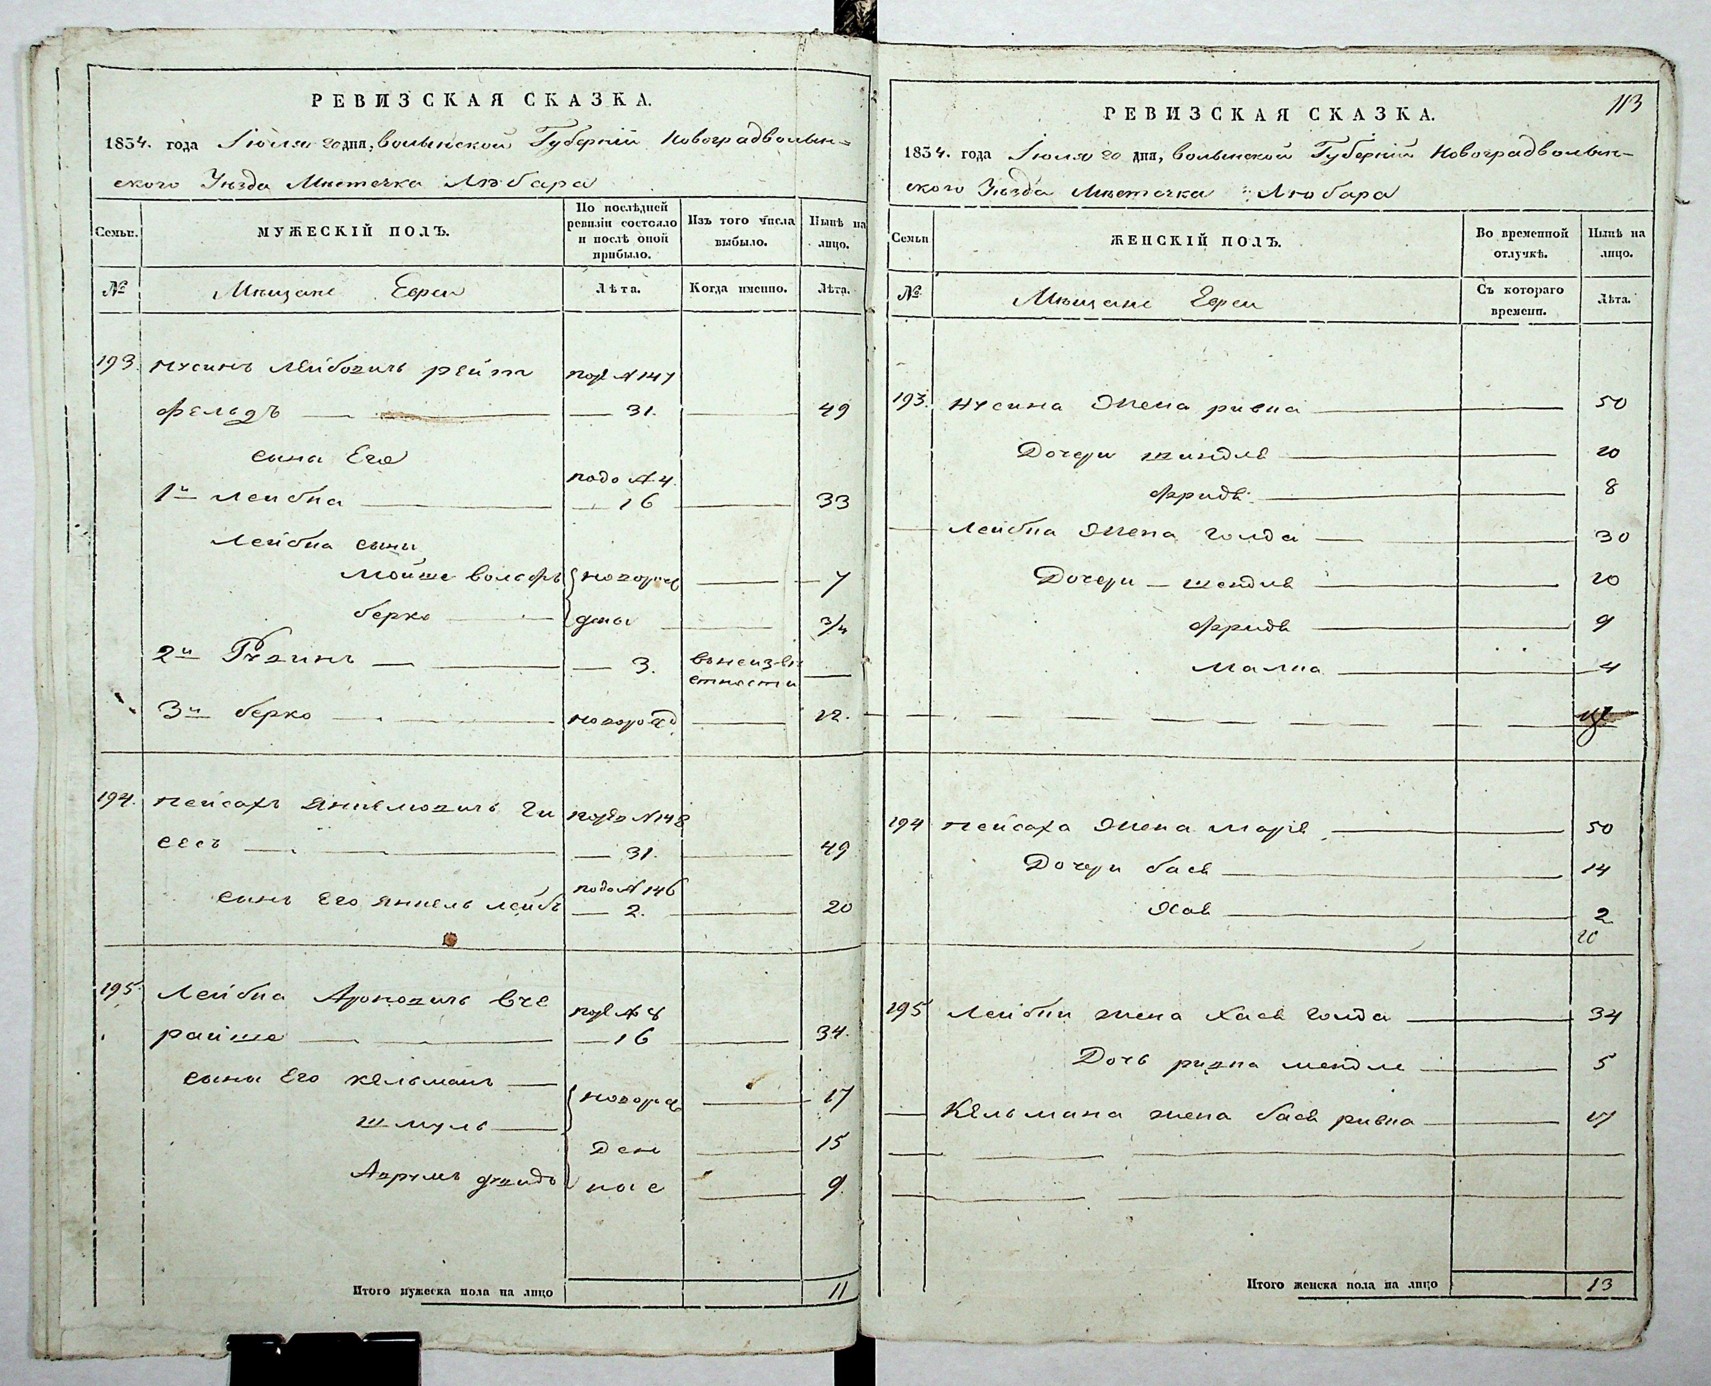 РЕВИЗСКАЯ СКАЗКА.
1834. года Іюля 20 дня, волынской Губерніи Новоградволын=
ского Уезда Местечка Любара
Семьи.
МУЖЕСКІЙ ПОЛЪ.
По послѣдней ревизіи состояло и послѣ оной прибыло.
Изъ того числа выбыло.
Нынѣ на лицо.
№
Мещане Евреи
Лѣта.
Когда именно.
Лѣта.
193. Нусинъ Лейбовичь рейт
фельдъ 31. 49
сыны Его
1й Лейбка 16 33
Лейбка сыны
Мойше вольфъ новорож 7
берко дены 3/4
2й 3. въ неизве
стности
3й берко новорожд 22.
194. пейсахъ Янкелювичь Ги
31. 49
сынъ Его янкель лейбъ 2. 20
195. Лейбка Ароновичь
райше 16 34.
сыны Его кельманъ новорож 17
шмуль ден 15
Аврумъ ные 9.
Итого мужеска пола на лицо 11
113
РЕВИЗСКАЯ СКАЗКА.
1834. года Іюля 20 дня, волынской Губерніи Новоградволын-
ского Уезда Местечка Любара
Семьи
ЖЕНСКІЙ ПОЛЪ.
Во временной отлучкѣ.
Нынѣ на лицо.
№.
Мещане Евреи
Съ котораго времени.
Лѣта.
193. Нусина Жена ривка 50
Дочери шиндле 20
фриде 8
Лейбка Жена голда 30
Дочери шендле 20
фриде 9
Малка 4
194 пейсаха Жена 50
Дочери бася 14
Хая 2
195 Лейбки жена Хая голда 34
Дочь ривка мендле 5
Кельмана жена бася ривка 17
Итого женска пола на лицо 13